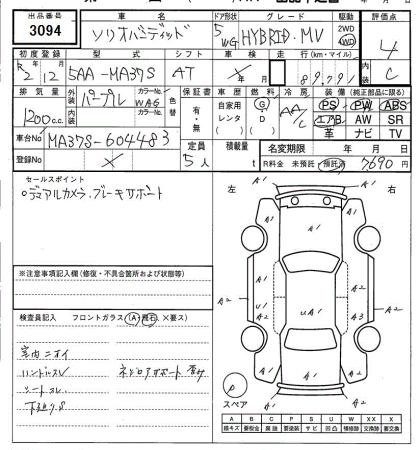 出品番号 車名 ドア形状 グレード 駆動 評価点
3094 ソリオバンディット 5 WG HYBRID・MV 2WD 4WD 4
初度登録 型式 シフト 車検 走行(km・マイル) 内装
R2 12月 5AA-MA37S AT ×年 月 89,791 C
排気量 外装 パープル カラーNo. 色替 保証書 車歴 燃料 冷房 装備(純正部品に限る)
1200c.c. 内装 カラーNo. 有・無 自家用 レンタ G D AAC PS PW ABS
エアB AW SR
革 ナビ TV
車台No MA37S-604483 定員 積載量 名変期限 年 月 日
登録No × 5人 t R料金 未預託 預託済 7690円
セールスポイント
○デュアルカメラ・ブレーキサポート
左 右
A1 A1 A1
A1 A1
A2 U1 A1 UA1 A2 A3 A2
A1 A2
A2 A2
※注意事項記入欄(修復・不具合箇所および状態等)
検査員記入 フロントガラス(A)(飛石)×要ス)
室内ニオイ
ハンドルスレ
シートスレ
下廻りS
スペア
A B C P S U W X XX
線キズ 要板金 腐蝕 要塗装 サビ 凹凸 補修跡 交換跡 要交換